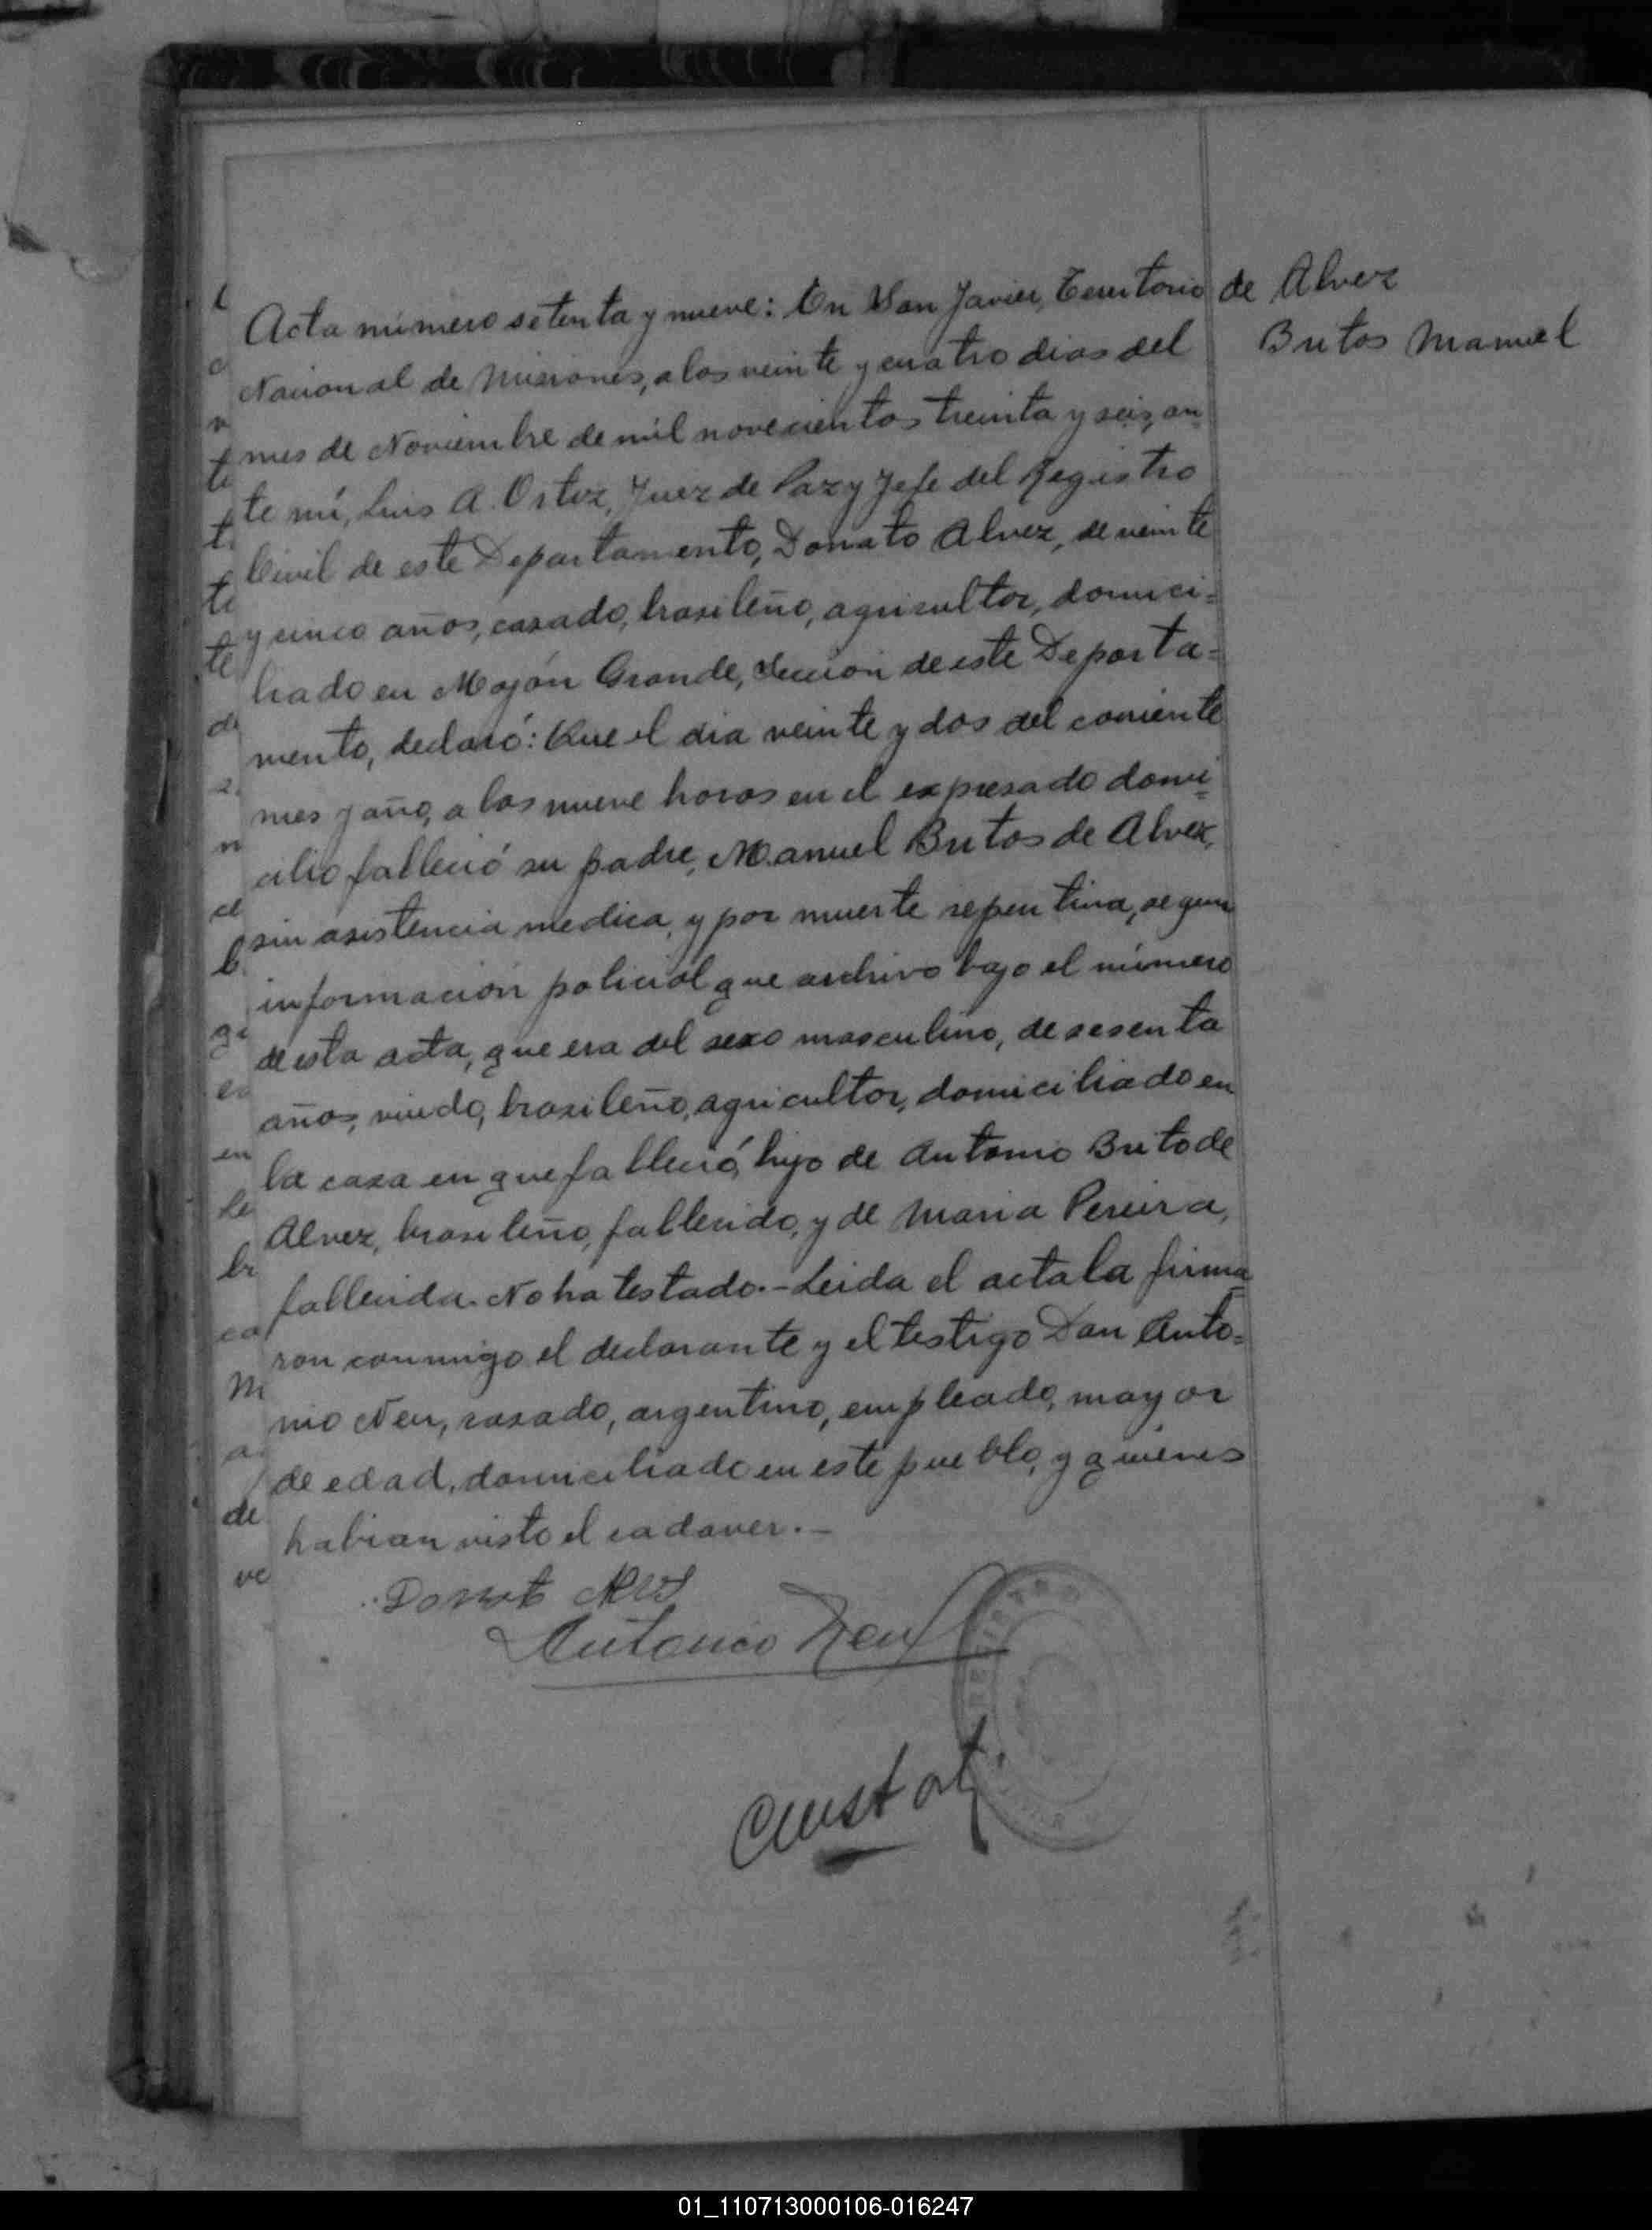 de Alvez
Britos Manuel
Acta número setenta y nueve: En San Javier, Territorio
Nacional de Misiones, a los veinte y cuatro dias del
mes de Noviembre de mil novecientos treinta y seis, an=
te mí, Luis A. Ortiz, Juez de Paz y Jefe del Registro
Civil de este Departamento, Donato Alvez, de veinte
y cinco años, casado, brasileño, agricultor, domici=
liado en Mojón Grande, Sección de este Departa=
mento, declaró: Que el dia veinte y dos del corriente
mes y año, a las nueve horas en el expresado domi=
cilio falleció su padre, Manuel Britos de Alvez,
sin asistencia medica, y por muerte repentina, segun
información policial que archivo bajo el número
de esta acta, que era del sexo masculino, de sesenta
años, viudo, brasileño, agricultor, domiciliado en
la casa en que falleció, hijo de Antonio Brito de
Alvez, brasileño, fallecido, y de Maria Pereira,
fallecida. No ha testado.- Leida el acta la firma=
ron conmigo el declarante y el testigo Don Anto=
nio Neu, casado, argentino, empleado, mayor
de edad, domiciliado en este pueblo, y quienes
habian visto el cadaver.-
Antonio Neu
01_110713000106-016247